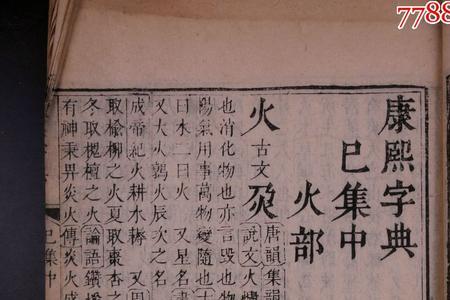 7788
康熙字典
巳集中
火部
火
古文
㶣
唐韻集韻
說文火燬
也消化物也亦言毀也物
陽氣用事萬物變隨也
曰水二曰火 又星名
又大火鶉火辰次之名
成帝紀火耕水耨 又
取榆柳之火夏取棗杏之
冬取槐檀之火論語鑽
有神秉畀炎火傳炎火
巳集中